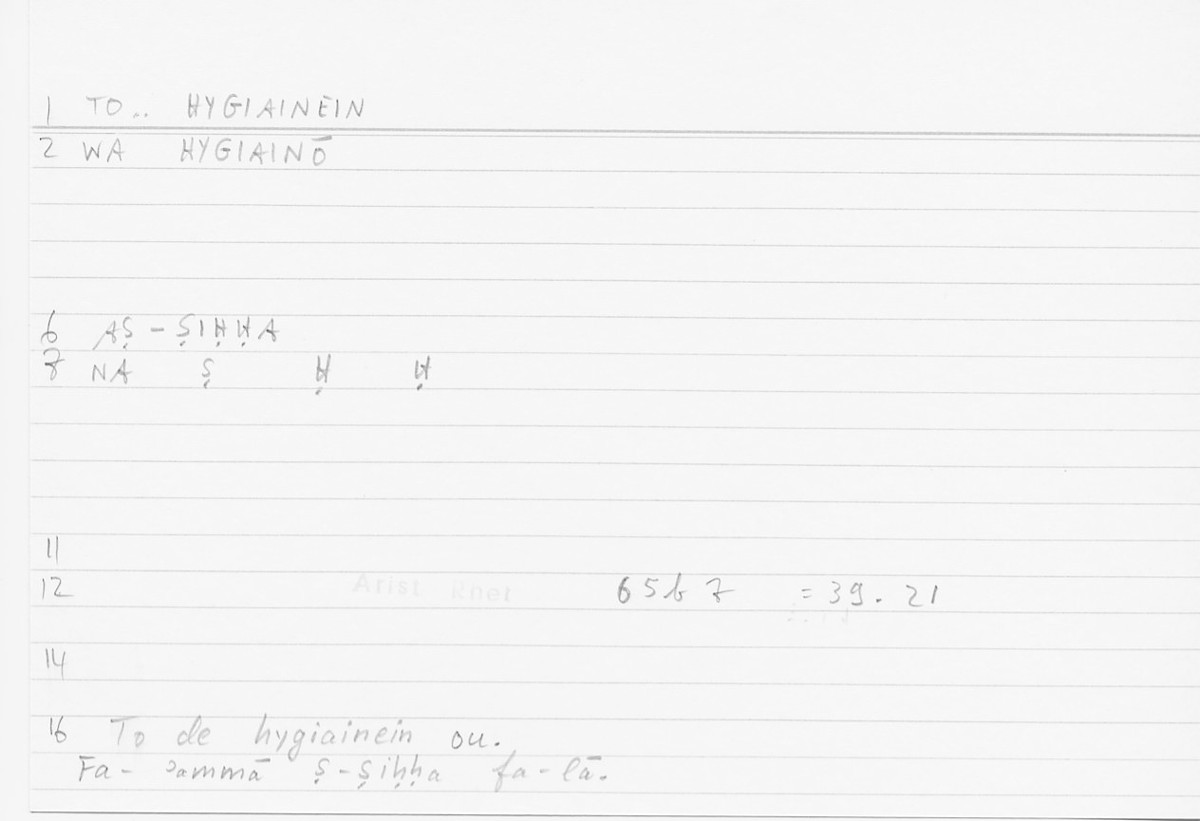 1 TO.. HYGIAINEIN
2 WA HYGIAINŌ
6 AṢ-ṢIḤḤA
7 NA Ṣ Ḥ Ḥ
11
12 Arist Rhet 65b7 =39.21
14
16 To de hygiainein ou.
Fa-ʾammā ṣ-ṣiḥḥa fa-lā.